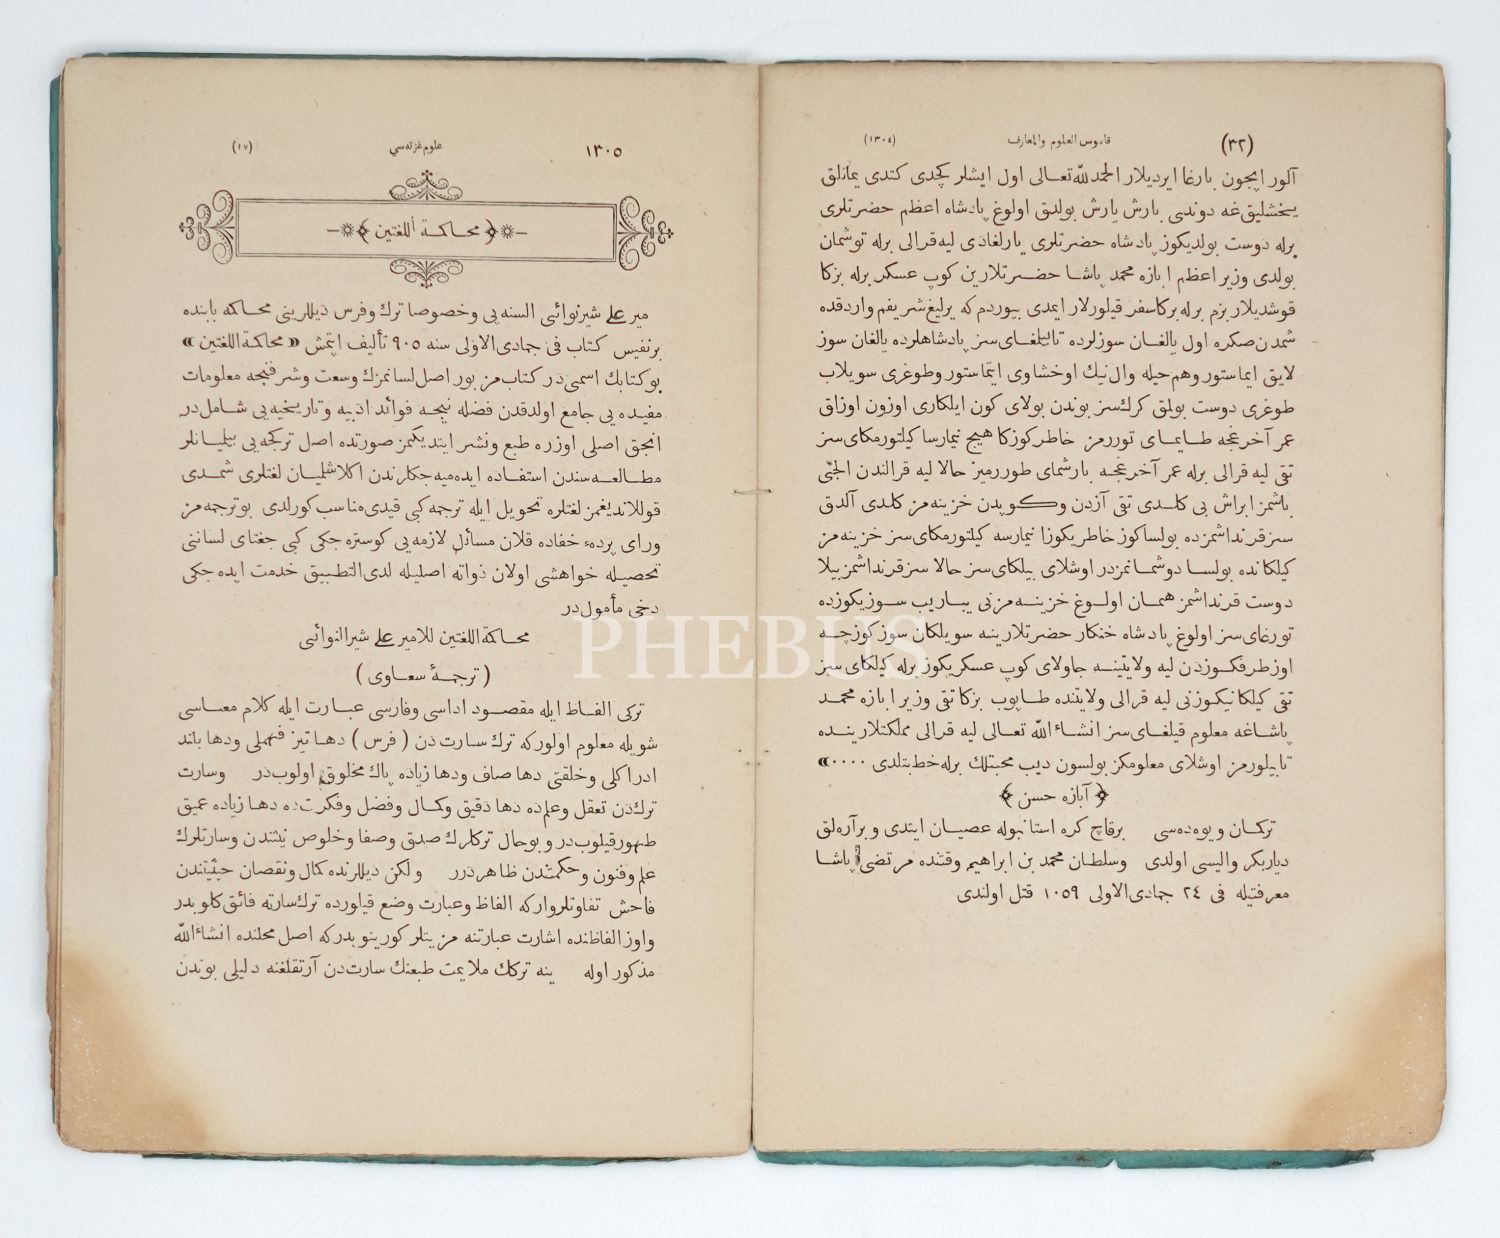 (٣٢) قاموس العلوم والمعارف (١٣٠٤)
آلور ایچون بارغا ایردیلار الحمد لله تعالی اول ایشلر کچدی کتدی یمانلق
یخشلیق‌غه دوندی بارش یارش بولدق اولوغ پادشاه اعظم حضرتلری
برله دوست بولدیکوز پادشاه حضرتلری یارلغادی لیه قرالی برله توشمان
بولدی وزیر اعظم ابازه محمد پاشا حضرتلارین کوپ عسکر برله بزکا
قوشدیلار بزم برله برکا سفر قیلورلار ایمدی بیوردم که یرلیغ شریفم واردقده
شمدن صکره اول یالغان سوزلرده تابیلغای سز پادشاهلرده یالغان سوز
لایق ایماستور وهم حیله وال نیك اوخشاوی ایتماستور وطوغری سویلاب
طوغری دوست بولمق کرك سز بوندن بولای کون ایلکاری اوزون اوزاق
عمر آخرغجه طایمای توررمز خاطرکوزکا هیچ نیمارسا کیلتورمکای سز
تقی لیه قرالی برله عمر آخرغجه بارشمای طوررمیز حالا لیه قرالندن الجی
باشمز ابراش بی کلدی تقی آزدن وکوپدن خزینه مز کلدی آلدق
سز قرنداشمزده بولساکوز خاطریکوزا نیمارسه کیلتورمکای سز خزینه مز
کیلکانده بولسا دوشمانمزدر اوشلای بیلکای سز حالا سز قرنداشمز بیلا
دوست قرنداشمز همان اولوغ خزینه مزنی یباریب سوزیکوزده
تورغای سز اولوغ پادشاه خنکار حضرتلارینه سویلکان سوزکوزچه
اوز طرفکوزدن لیه ولایتینه جاولای کوپ عسکریکوز برله کیلکای سز
تقی کیلکانیکوزنی لیه قرالی ولایتنده طاپوب بزکا تقی وزیر ابازه محمد
پاشاغه معلوم قیلغای سز انشاء الله تعالی لیه قرالی مملکتلارینده
تابیلورمز اوشلای معلومکز بولسون دیب محبتلك برله خط بتلدی ٠٠٠٠»
﴿ آبازه حسن ﴾
ترکمان ویوه‌ده‌سی برقاچ کره استانبوله عصیان ایتدی وبرآره‌لق
دیاربکر والیسی اولدی وسلطان محمد بن ابراهیم وقتنده مرتضی پاشا
معرفتیله فی ٢٤ جمادی‌الاولی ١٠٥٩ قتل اولندی
١٣٠٥ علوم غزته‌سی (١٧)
﴿ محاکمة اللغتین ﴾
میر علی شیرنوائی السنه‌یی وخصوصا ترك وفرس دیللرینی محاکمه بابنده
برنفیس کتاب فی جمادی‌الاولی سنه ٩٠٥ تألیف ایتمش «محاکمة اللغتین»
بوکتابك اسمی‌در کتاب مزبور اصل لسانمزك وسعت وشرفنجه معلومات
مفیده‌یی جامع اولدقدن فضله نیجه فوائد ادبیه وتاریخیه‌یی شاملدر
انجق اصلی اوزره طبع ونشر ایتدیکمز صورتده اصل ترکجه‌یی بیلیانلر
مطالعه‌سندن استفاده ایده‌میه‌جکلرندن اکلاشلمیان لغتلری شمدی
قوللاندیغمز لغتلره تحویل ایله ترجمه کبی قیدی مناسب کورلدی بوترجمه مز
ورای پردهٔ خفاده قلان مسائل لازمه‌یی کوستره‌جکی کبی جغتای لساننی
تحصیله خواهشی اولان ذواته اصلیله لدی‌التطبیق خدمت ایده‌جکی
دخی مأمولدر
محاکمة اللغتین للامیر علی شیرالنوائی
( ترجمهٔ سعاوی )
ترکی الفاظ ایله مقصود اداسی وفارسی عبارت ایله کلام معناسی
شویله معلوم اولورکه ترك سارت‌دن ( فرس ) دها تیز فهملی ودها بلند
ادراکلی وخلقتی دها صاف ودها زیاده پاك مخلوق اولوب‌در وسارت
ترکدن تعقل وعلمده دها دقیق وکمال وفضل وفکرتده دها زیاده عمیق
ظهور قیلوب‌در وبوحال ترکلرك صدق وصفا وخلوص نیتندن وسارتلرك
علم وفنون وحکمتندن ظاهردرر ولکن دیللرنده کمال ونقصان حیثیتندن
فاحش تفاوتلر وارکه الفاظ وعبارت وضع قیلورده ترك سارته فائق کلوبدر
واوز الفاظنده اشارت عبارتنه مزیتلر کورینوبدرکه اصل محلنده انشاء الله
مذکور اوله ینه ترکك ملایمت طبعنك سارت‌دن آرتقلغنه دلیلی بوندن
PHEBUS